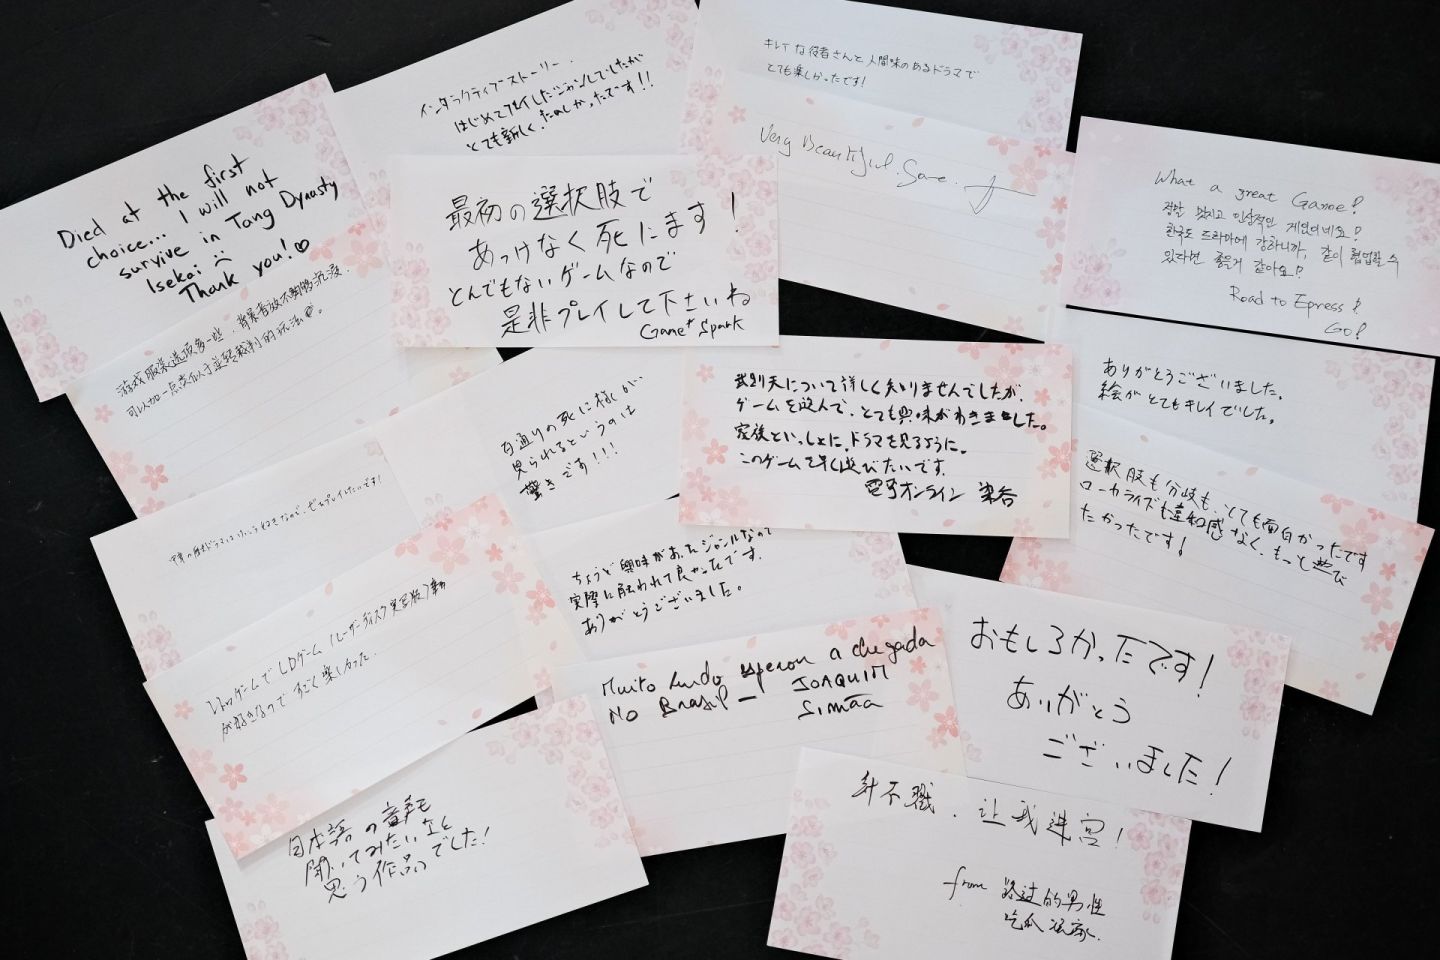 インタラクティブストーリー.
はじめてプレイしたジャンルでしたが
とても新しく、たのしかったです!!
キレイな役者さんと人間味のあるドラマで
とても楽しかったです!
Very Beautiful.
What a great Game!
정말 멋지고 인상적인 게임이네요!
한국도 드라마에 강하니까, 같이 협업할 수
있다면 좋을거 같아요!
Road to Epress!
Go!
Died at the first
choice... I will not
survive in Tang Dynasty
Isekai :(
Thank you! ♡
最初の選択肢で
あっけなく死にます!
とんでもないゲームなので
是非プレイして下さいね
Game* Spark
游戏服装选项多一些,背景音效不够沉浸,
可以加一点类似于逆转裁判的玩法
百通りの死に様が
見られるというのは
驚きです!!!
武則天について詳しく知りませんでしたが、
ゲームを遊んで、とても興味がわきました。
家族といっしょに、ドラマを見るように。
このゲームを早く遊びたいです。
電撃オンライン 染谷
ありがとうございました。
絵がとてもキレイでした。
選択肢も分岐も、とても面白かったです
ローカライズも違和感なく、もっと遊び
たかったです!
ぜひプレイしたいです!
ちょうど興味があったジャンルなので
実際に触われて良かったです。
ありがとうございました。
レトロゲームでLDゲーム(レーザーディスク実写版)等
が好きなので すごく楽しかった.
Muito lindo esperon a chegada
No Brasil — JOAQUIM
Simãa
おもしろかったです!
ありがとう
ございました!
日本語の音声も
聞いてみたいなと
思う作品でした!
针不戳,让我进宫!
from 路过的男性